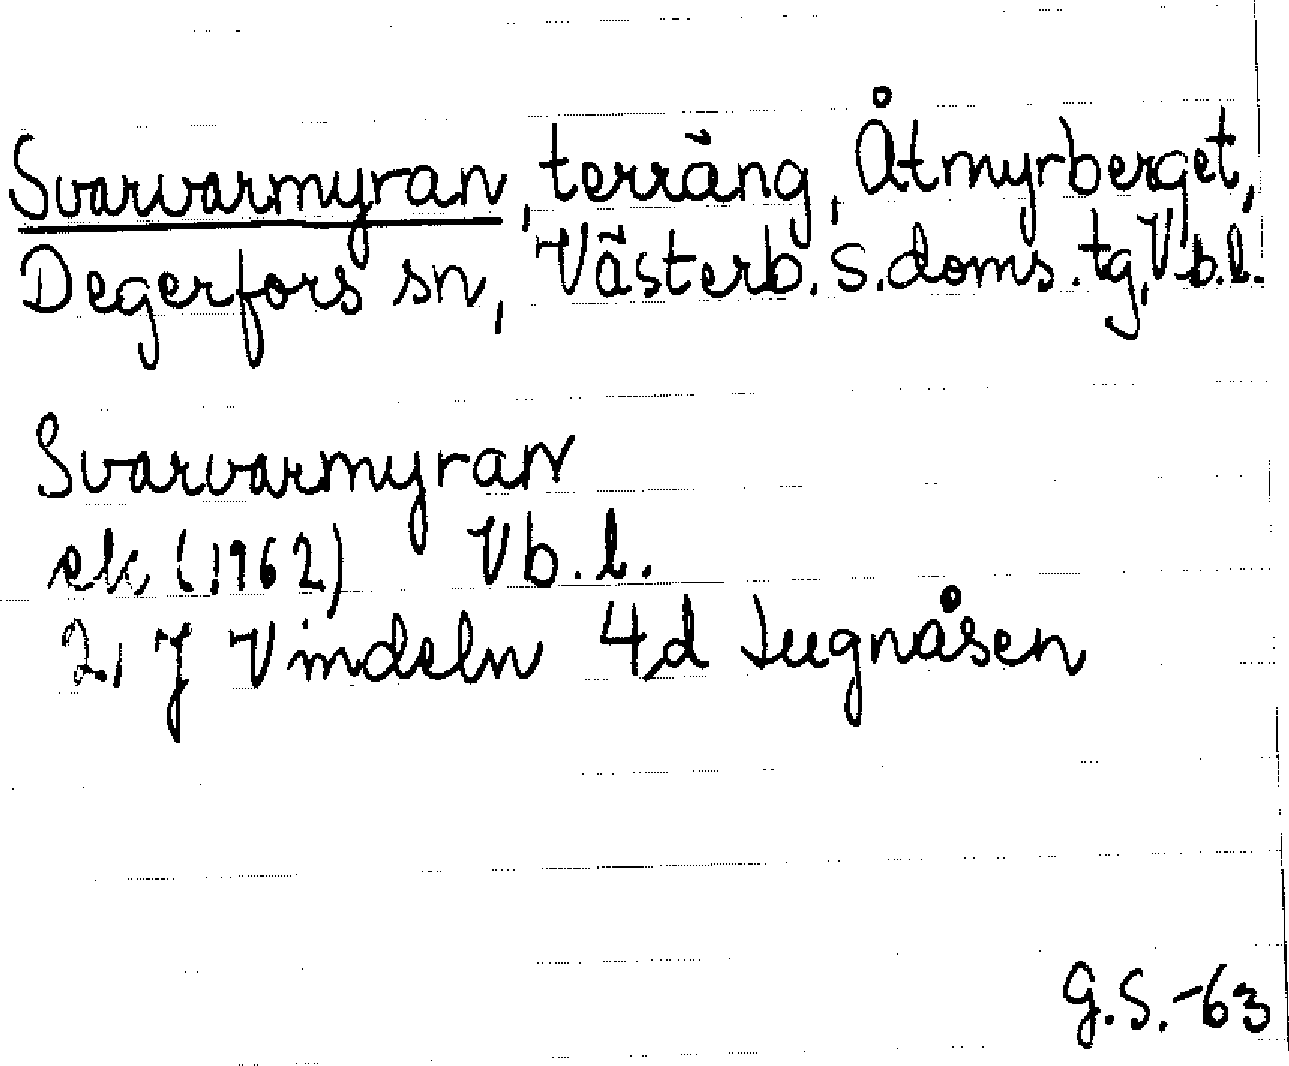 Svarvarmyran, terräng, Åtmyrberget,
Degerfors sn, Västerb. s. doms. tg, Vb.l.
Svarvarmyran
ek (1962) Vb.l.
21 J Vindeln 4d Lugnåsen
G.S.-63